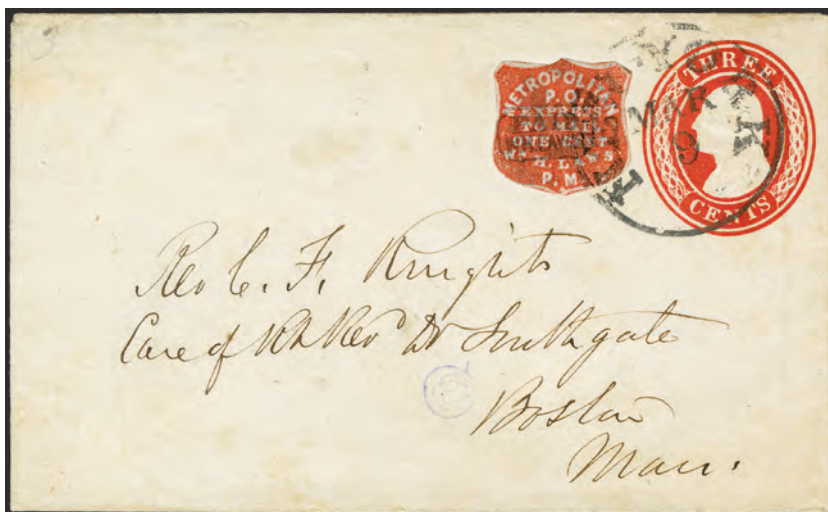 METROPOLITAN
P.O.
EXPRESS
TO MAIL
ONE CENT
WM. H. LAWS
P.M.
THREE
CENTS
MAR
9
Rev C. F. Knights
Care of Rt Revd Dr Southgate
Boston
Mass.